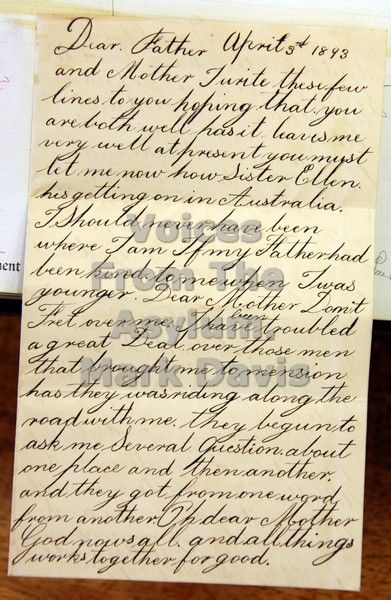 Dear. Father April 3rd 1893
and Mother I write these few
lines to you hoping that you
are both well has it leavis me
very well at present you must
let me now how Sister Ellen.
his getting on in Australia.
I Should never have been
where I am If my Father had
been kind to me when I was
younger. Dear Mother Don't
Fret over me. I have been troubled
a great Deal over those men
that brought me to mension
has they was riding along the
road with me. they begun to
ask me Several Question about
one place and then another.
and they got from one word
from another. Oh dear Mother
God nows all. and all things
works together for good.
ment
Voices
From The
Asylum.
Mark Davis